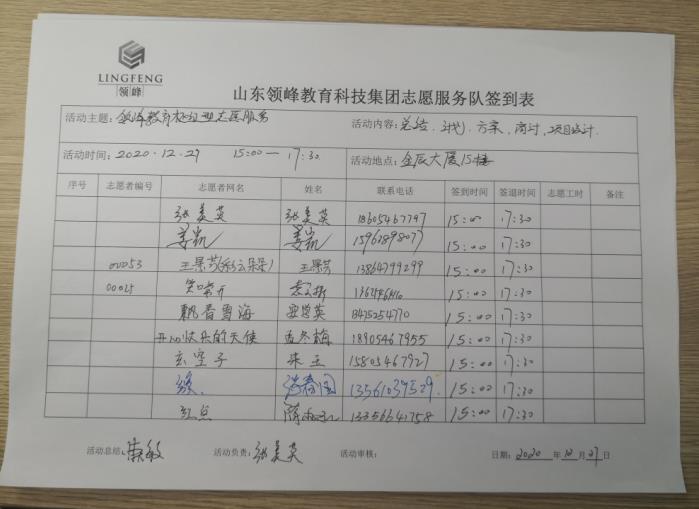 LINGFENG
领峰
山东领峰教育科技集团志愿服务队签到表
活动主题: 领峰教育 志愿服务 活动内容: 总结、计划、方案、商讨、项目设计.
活动时间: 2020.12.27 15:00—17:30 活动地点: 金辰大厦15楼
序号 志愿者编号 志愿者网名 姓名 联系电话 签到时间 签退时间 志愿工时 备注
张美英 张美英 18605467797 15:00 17:30
姜凯 姜凯 15:00 17:30
00053 王景芳(彩云朵朵) 王景芳 13864799299 15:00 17:30
笑口常开 15:00 17:30
飘香雪海 18475254770 15:00 17:30
开心快乐的天使 孟冬梅 18905467955 15:00 17:30
玄空子 朱玉 15805467927 15:00 17:30
缘. 13561039529 15:00 17:30
红点 13356641758 15:00 17:30
活动总结: 活动负责: 张美英 活动审核: 日期: 2020 年 12 月 27 日